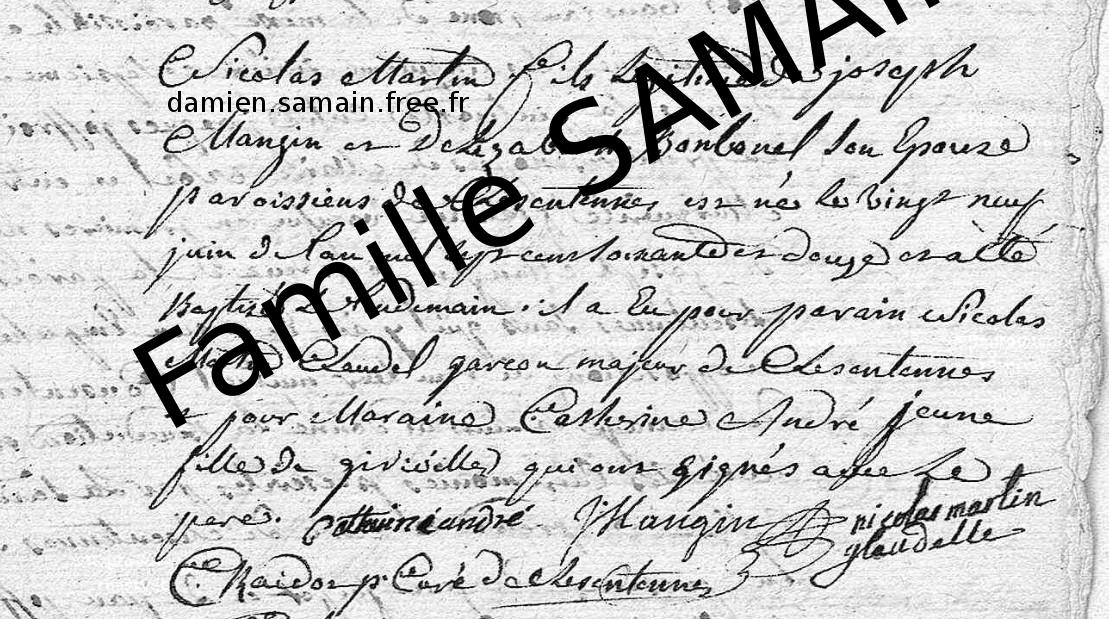 Nicolas Martin fils légitime de joseph
damien.samain.free.fr
Mangin et D'elizabeth Bonbonel Son Epouse
paroissiens de est né le vingt neuf
juin de l'an mil Sept cens soixante et douze et a été
Baptisé Le Lendemain. il a Eu pour parain Nicolas
Martin Claudel garcon majeur de
et pour Maraine Catherine André jeune
fille de qui ont signés avec Le
pere. Catherine andré JMangin nicolas martin
glaudelle
p.tre Curé de
Famille SAMAIN